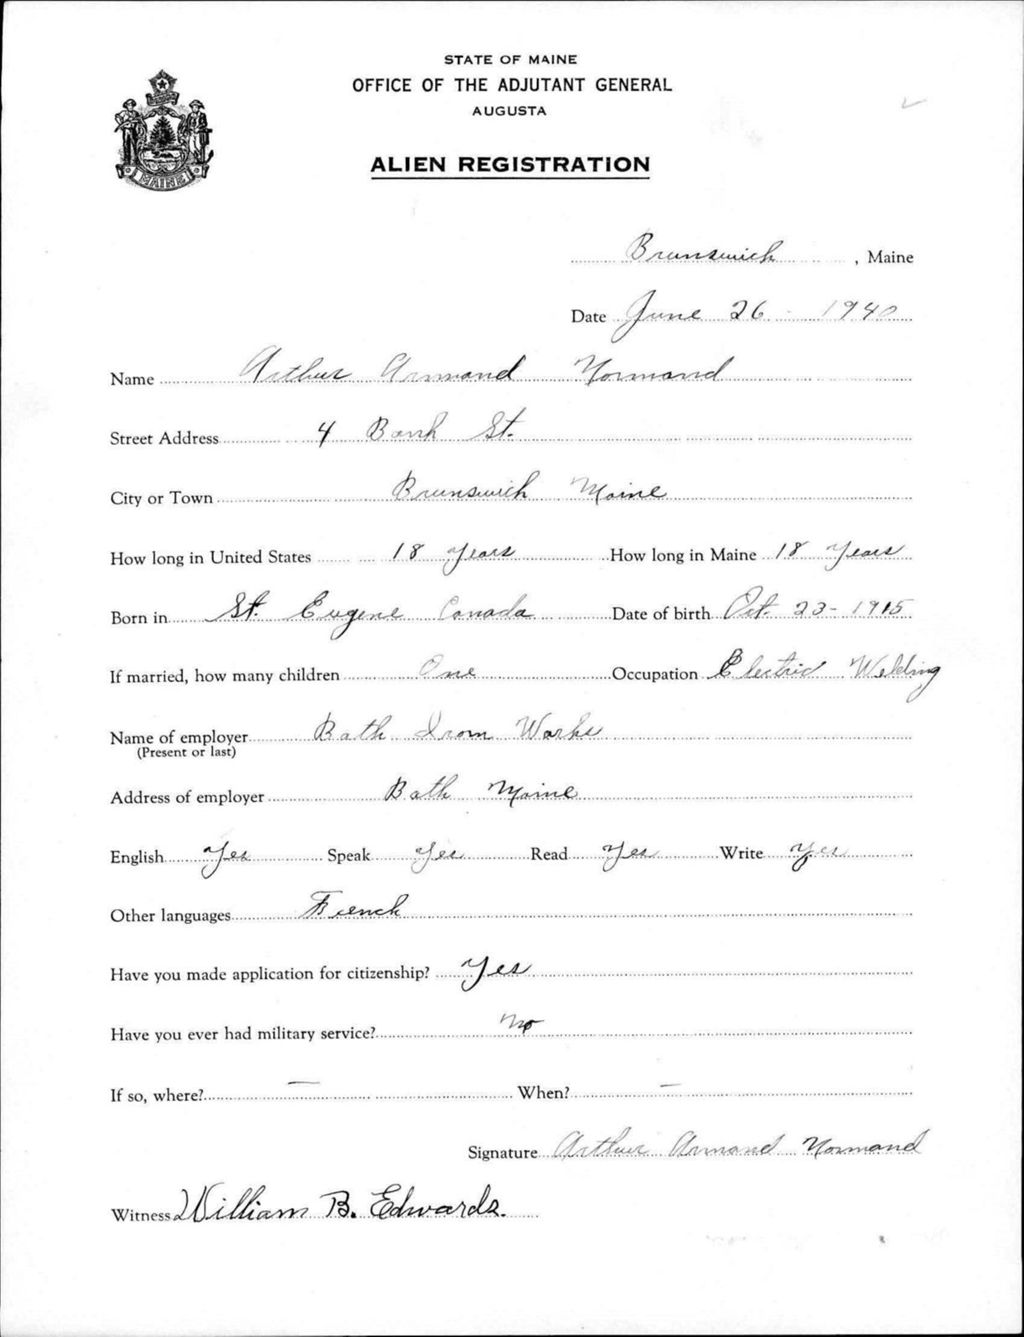 STATE OF MAINE
OFFICE OF THE ADJUTANT GENERAL
AUGUSTA
ALIEN REGISTRATION
MAINE
Brunswick, Maine
Date June 26 - 1940
Name Arthur Armand Normand
Street Address 4 Bank St.
City or Town Brunswick Maine
How long in United States 18 years How long in Maine 18 years
Born in St. Eugene Canada Date of birth Oct. 23 - 1915
If married, how many children One Occupation Electric Welding
Name of employer Bath Iron Works
(Present or last)
Address of employer Bath Maine
English Yes Speak Yes Read Yes Write Yes
Other languages French
Have you made application for citizenship? Yes
Have you ever had military service? No
If so, where? — When? —
Signature Arthur Armand Normand
Witness William B. Edwards.